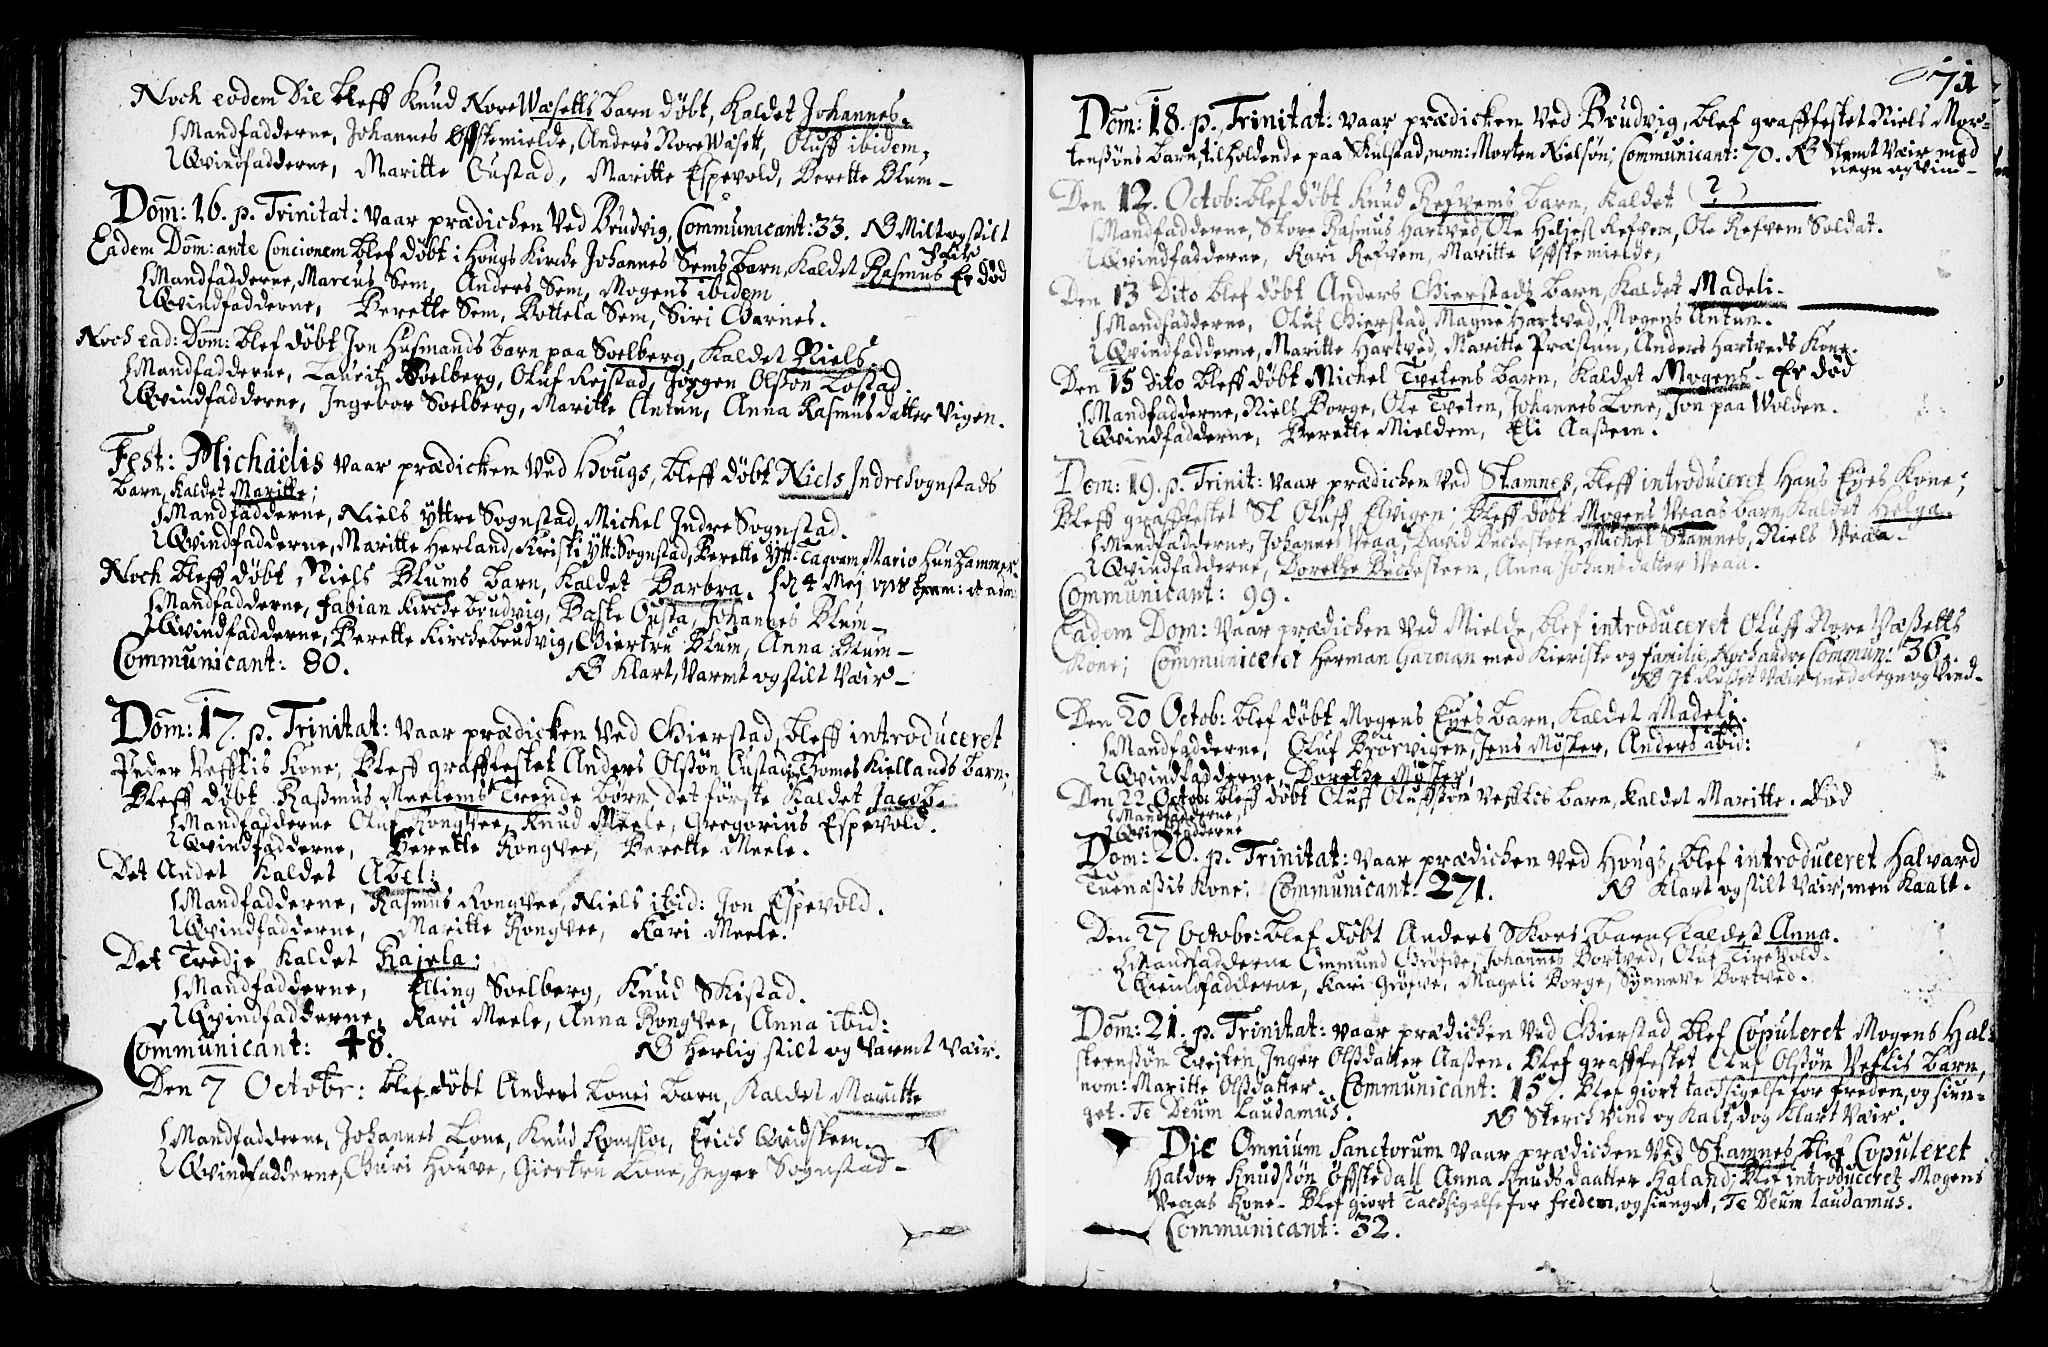 Noch eodem Die bleff Knud NoreWasetts barn döbt, Kaldet Johannes.
Mandfadderne, Johannes Öffstemielde, Anders Nore Wasett, Oluff ibidem,
Qvindfadderne, Maritte Oustad, Maritte Espevold, Berette Blum_
Dom: 16. p. Trinitat: vaar prædichen ved Brudvig, Communicant: 33. NB Milt og stilt
Eadem Dom: ante Concionem blef döbt i Hougs Kirche Johannes Sems barn, Kaldet Rasmus Er död
Mandfadderne, Marcus Sem, Anders Sem, Mogens ibidem
Qvindfadderne, Berette Sem, Bottela Sem, Siri Garnes.
Noch ead: Dom: blef döbt Jon Husmands barn paa Soelberg, Kaldet Niels.
Mandfadderne, Lauritz Soelberg, Oluf Reistad, Jörgen Olssön Lostad.
Qvindfadderne, Ingebor Soelberg, Maritte Antun, Anna Rasmusdatter Vigen.
Fest: Michaëlis vaar prædicken ved Hougs, bleff döbt Niels Indre Sognstads
barn, Kaldet Maritte;
Mandfadderne, Niels Yttre Sognstad, Michel Indre Sognstad.
Qvindfadderne, Maritte Herland, Kirsti Ytt: Sognstad, Berette Ytt: Mario Hunhammer.
Noch bleff döbt Niels Blums barn, Kaldet Barbra. 4 Mej
Mandfadderne, Fabian Kirchebrudvig, Baste Ousta, Johannes Blum_
Qvindfadderne, Berette Kirchebrudvig, Giertru Blum, Anna Blum_
Communicant: 80. NB Klart, Varmt og stilt Vair_
Dom: 17. p. Trinitat: vaar prædicken ved Gierstad, bleff introduceret
Peder Vefftis Kone; Bleff grafffestet Anders Olssön Oustad, Thomes Kiellands barn,
Bleff döbt Rasmus Meelems Trende börn, det förste Kaldet Jacob.
Mandfadderne Oluf Rongvee, Knud Meele, Gregorius Espevold.
Qvindfadderne, Berette Rongvee, Berette Meele.
Det Andet Kaldet Abel:
Mandfadderne, Rasmus Rongvee, Niels ibid: Jon Espevold.
Qvindfadderne, Maritte Rongvee, Kari Meele.
Det Tredje Kaldet Rajela:
Mandfadderne, Elling Soelberg, Knud Skistad.
Qvindfadderne, Kari Meele, Anna Rongvee, Anna ibid:
Communicant: 48. NB Herlig stilt og Varmt Vair.
Den 7 Octobr: blef döbt Anders Lones barn, Kaldet Maritte
Mandfadderne, Johannes Lone, Knud Romslo, Erich Qvidsteen.
Qvindfadderne, Guri Houve, Giertru Lone, Inger Sognstad_
71
Dom: 18. p. Trinitat: vaar prædicken ved Brudvig, blef grafffestet Niels Mor=
tenssöns barn, tilholdende paa Skulstad, nom: Morten Nielssön; Communicant: 70. NB Stemt Vair med
Regn og Vind_
Den 12. Octob: blef döbt Knud Refvems barn, Kaldet (?)
Mandfadderne, Store Rasmus Hartved, Ole Refvem, Ole Refvem Soldat.
Qvindfadderne, Kari Refvem, Maritte Offstemielde,
Den 13 Dito blef döbt Anders Gierstads barn, Kaldet Madeli.
Mandfadderne, Oluf Gierstad, Magne Hartved, Mogens Antun.
Qvindfadderne, Maritte Hartved, Maritte Præstun, Anders Hartveds Kone.
Den 15 Dito bleff döbt Michel Tvetens barn, Kaldet Mogens. Er död
Mandfadderne, Niels Borge, Ole Tveten, Johannes Lone, Jon paa Wolden.
Qvindfadderne, Berette Mieldem, Eli Aassem.
Dom: 19. p. Trinit: vaar prædichen ved Stamnes, bleff introduceret Hans Eyes Kone;
Bleff grafffestet Sl Oluff Elvigen; Bleff döbt Mogens Veaas barn, Kaldet Helga.
Mandfadderne, Johannes Veaa, David Buchesteen, Michel Stamnes, Niels Veaa.
Qvindfadderne, Dorethe Buchesteen, Anna Johansdatter Veaa.
Communicant: 99.
Eadem Dom: vaar prædichen ved Mielde, blef introduceret Oluff Nore Væssetts
Kone; Communiceret Herman Garman med Kieriste og familie, Noch andre Commun: 36.
NB Vair med Regn og Vind_
Den 20 Octob: blef döbt Mogens Eyes barn, Kaldet Madeli.
Mandfadderne, Oluf Brörvigen, Jens Möster, Anders ibid:
Qvindfadderne, Dorethe Möster,
Den 22 Octobr: bleff döbt Oluff Oluffssön Vefftis barn, Kaldet Maritte. död
Mandfadderne,
Qvindfadderne
Dom: 20. p. Trinitat: vaar prædichen ved Hougs, blef introduceret Halvard
Tuenæssis Kone; Communicant: 271. NB Klart og stilt Vair, men Kaalt.
Den 27 Octobr: blef döbt Anders Skors barn, Kaldet Anna.
Mandfadderne Ommund Gröfve, Johannes Bortved, Oluf Tirevold.
Qvindfadderne, Kari Gröfve, Mageli Borge, Synneve Bortved.
Dom: 21. p. Trinitat: vaar prædichen ved Gierstad Blef Copuleret Mogens Hal=
steenssön Tveiten, Inger Olssdatter Aassen. Blef grafffestet Oluf Olssön Veftis barn,
nom: Maritte Olssdatter. Communicant: 157. Blef giort tachsigelse for freden, og siun=
get. Te Deum Laudamus. NB Sterch Vind og Kalt, dog Klart Vair.
Die Omnium Sanctorum vaar prædichen ved Stamnes, blef Copuleret
Haldor Knudssön Öffstedall Anna Knudsdaatter Kaland; Blef introduceret Mogens
Veaas Kone_ Blef giort Tachsigelse for freden, og siunget, Te Deum laudamus.
Communicant: 32.